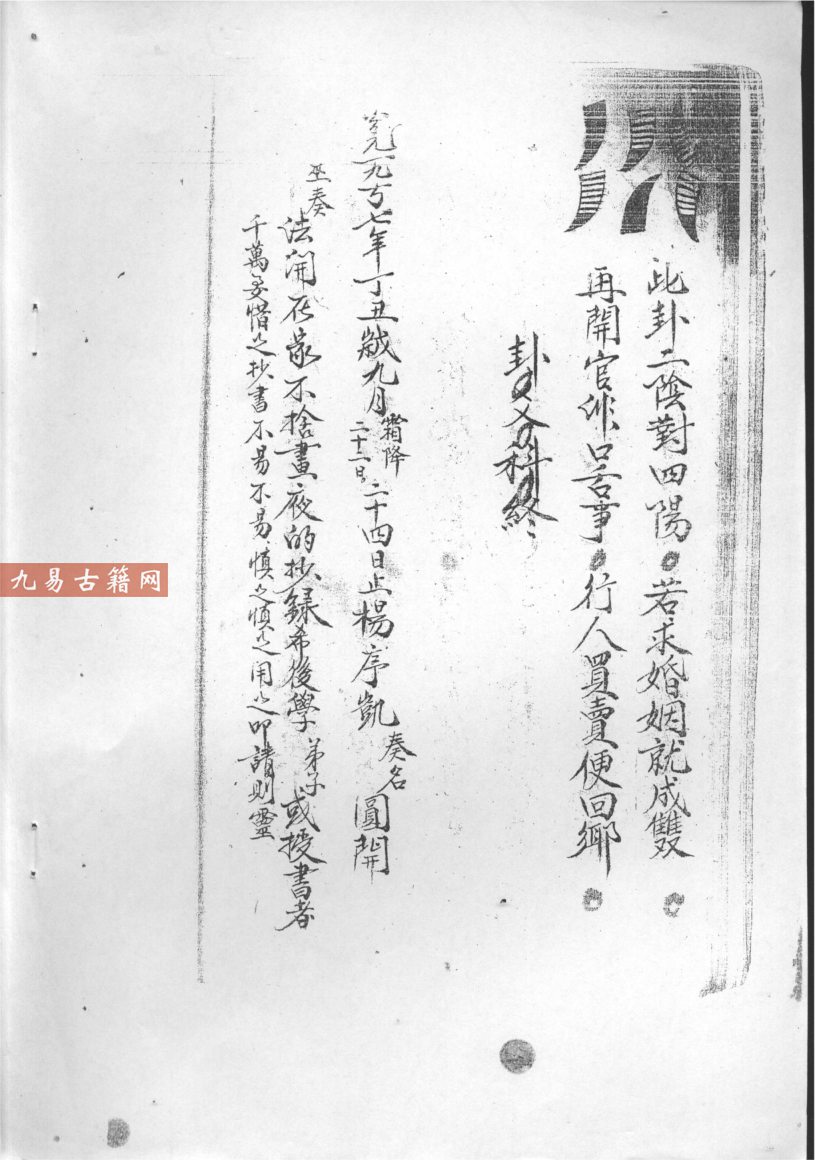 此卦二陰對四陽若求婚姻就成雙
再開官非口舌事行人買賣便回鄉
卦文科終
元一九七年丁丑歲九月霜降二十二日二十四日止楊序凱奏名圓開
巫奏法開在家不捨晝夜的抄錄希後學弟子或授書者
千萬妥惜之抄書不易不易慎之慎之用之叩請則靈
九易古籍网